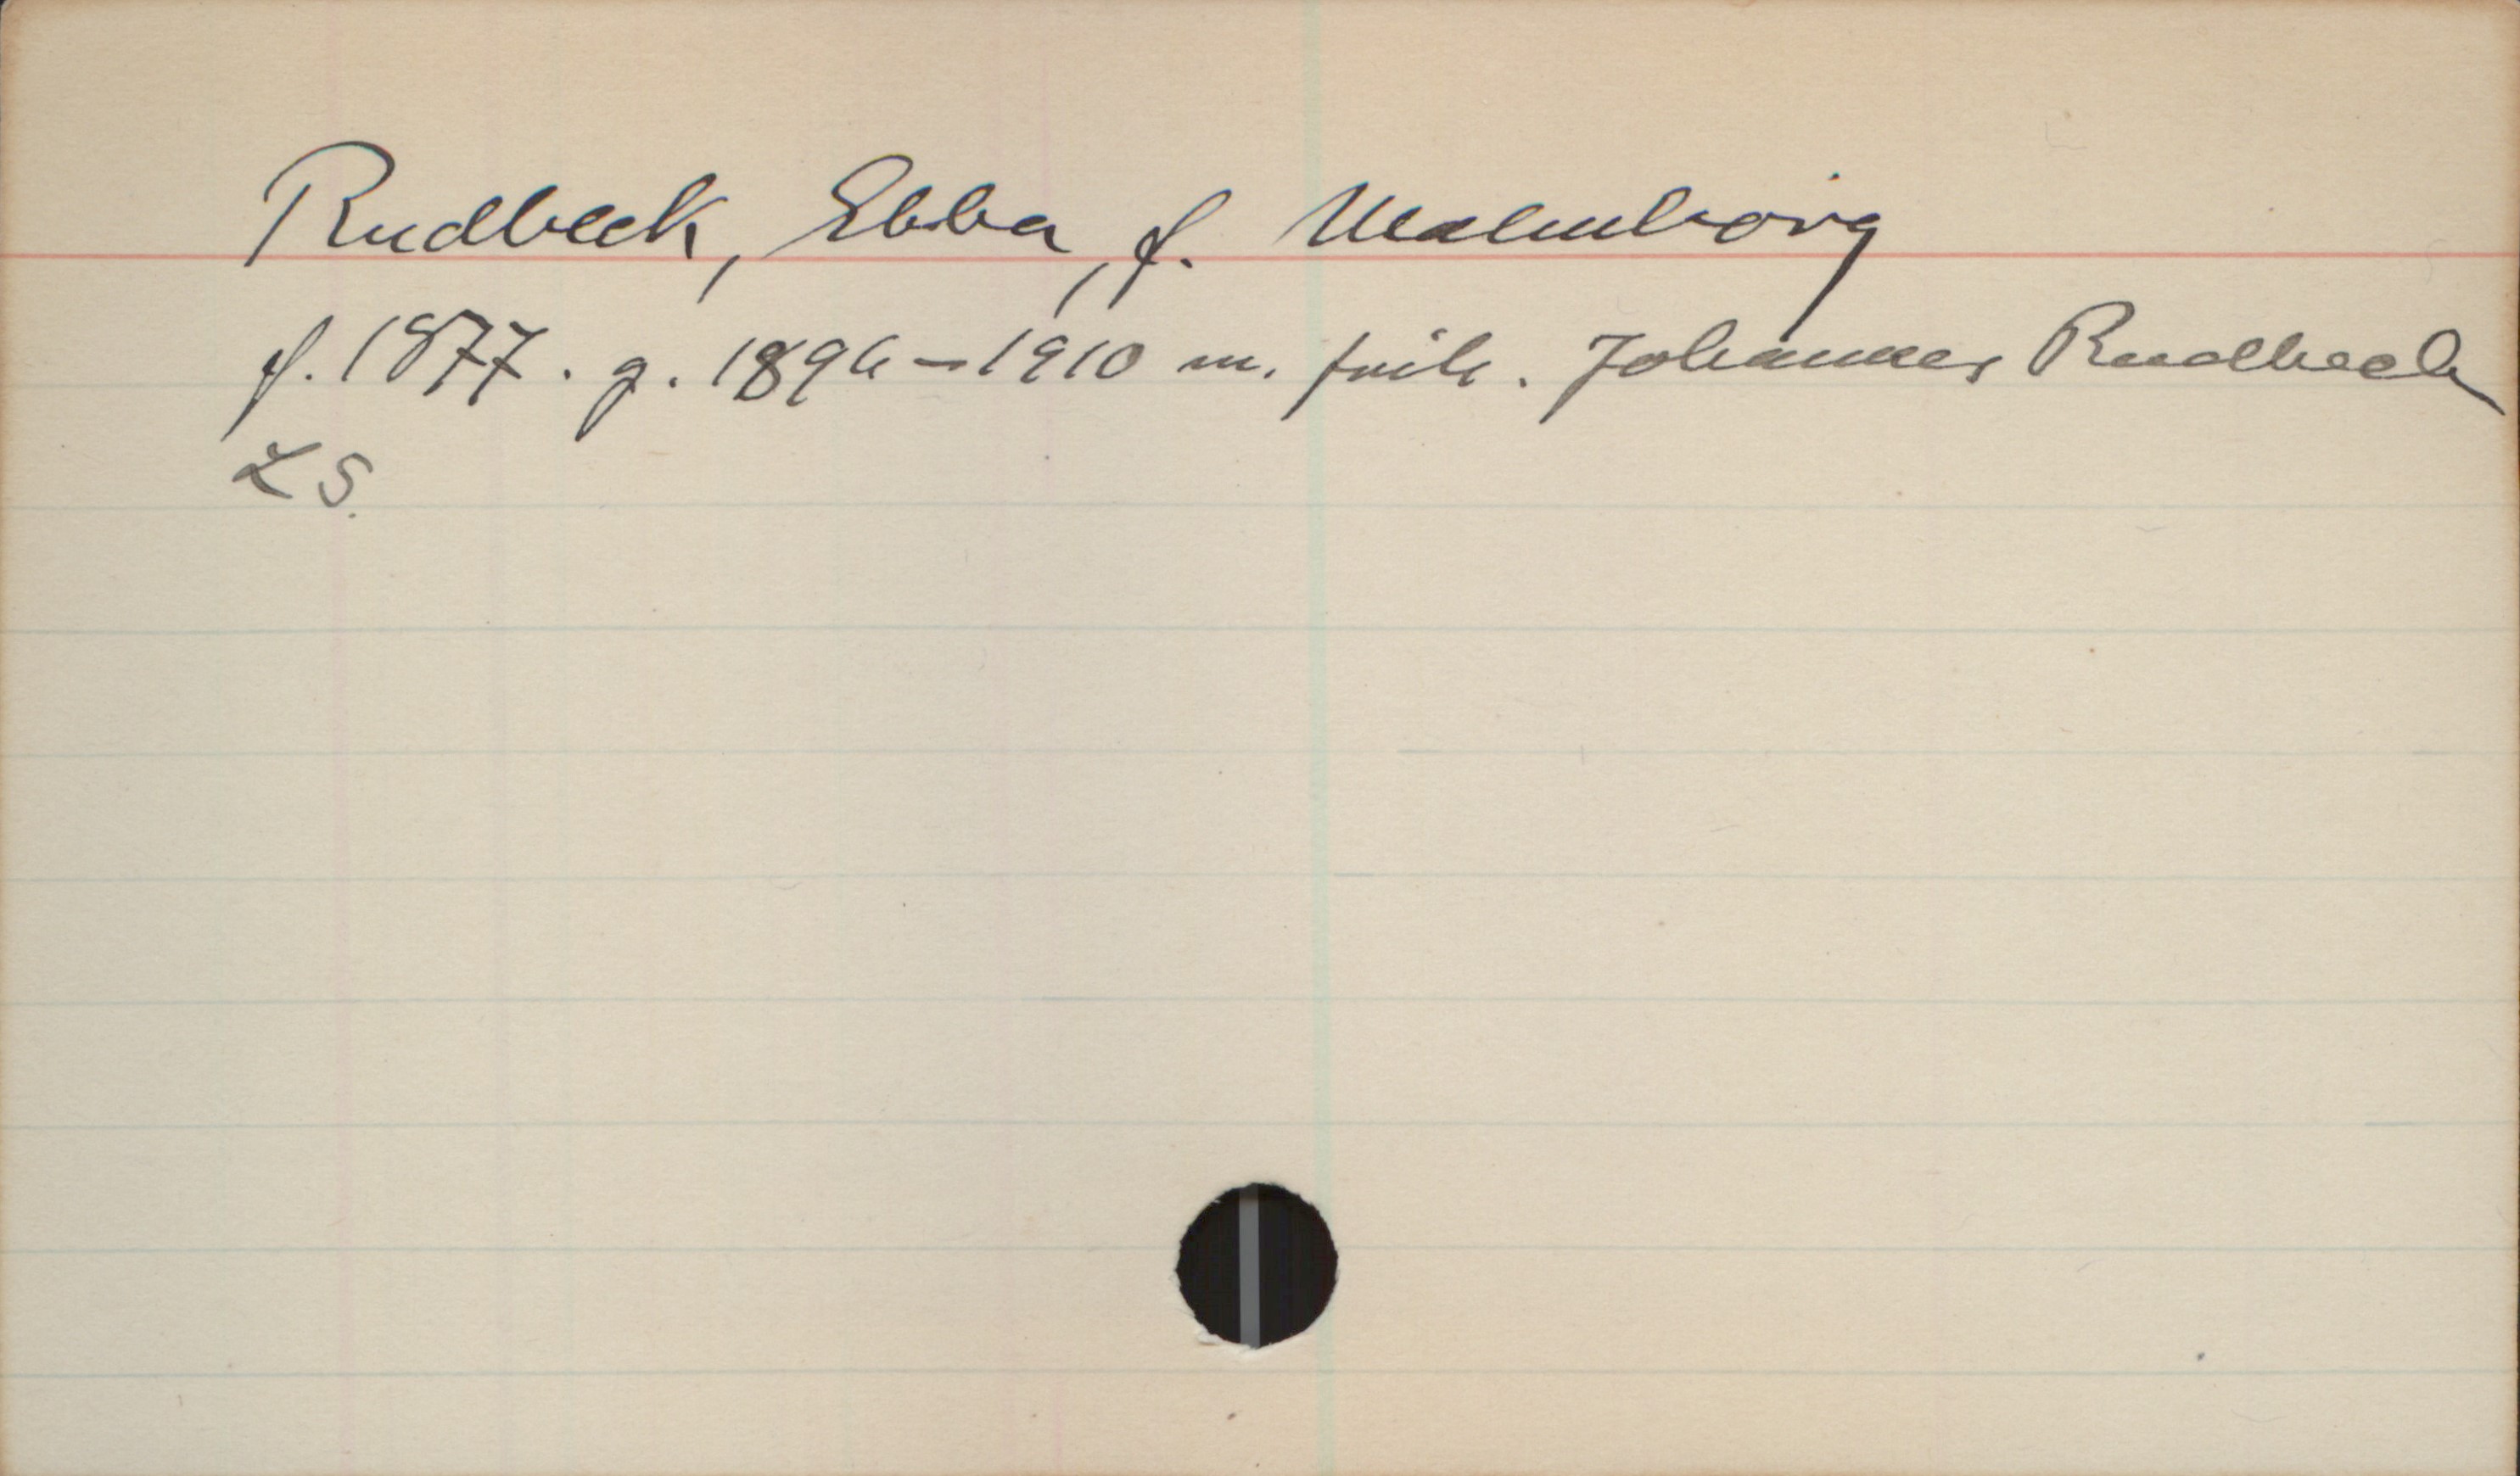 Rudbeck, Ebba, f. Malmborg
f. 1877. g. 1896–1910 m. frih. Johannes Rudbeck